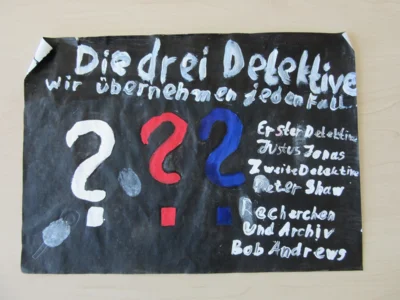 Die drei Detektive
wir übernehmen jeden Fall.
? ? ?
Erster Detektiv
Justus Jonas
Zweite Detektiv
Peter Shaw
Recherchen
und Archiv
Bob Andrews